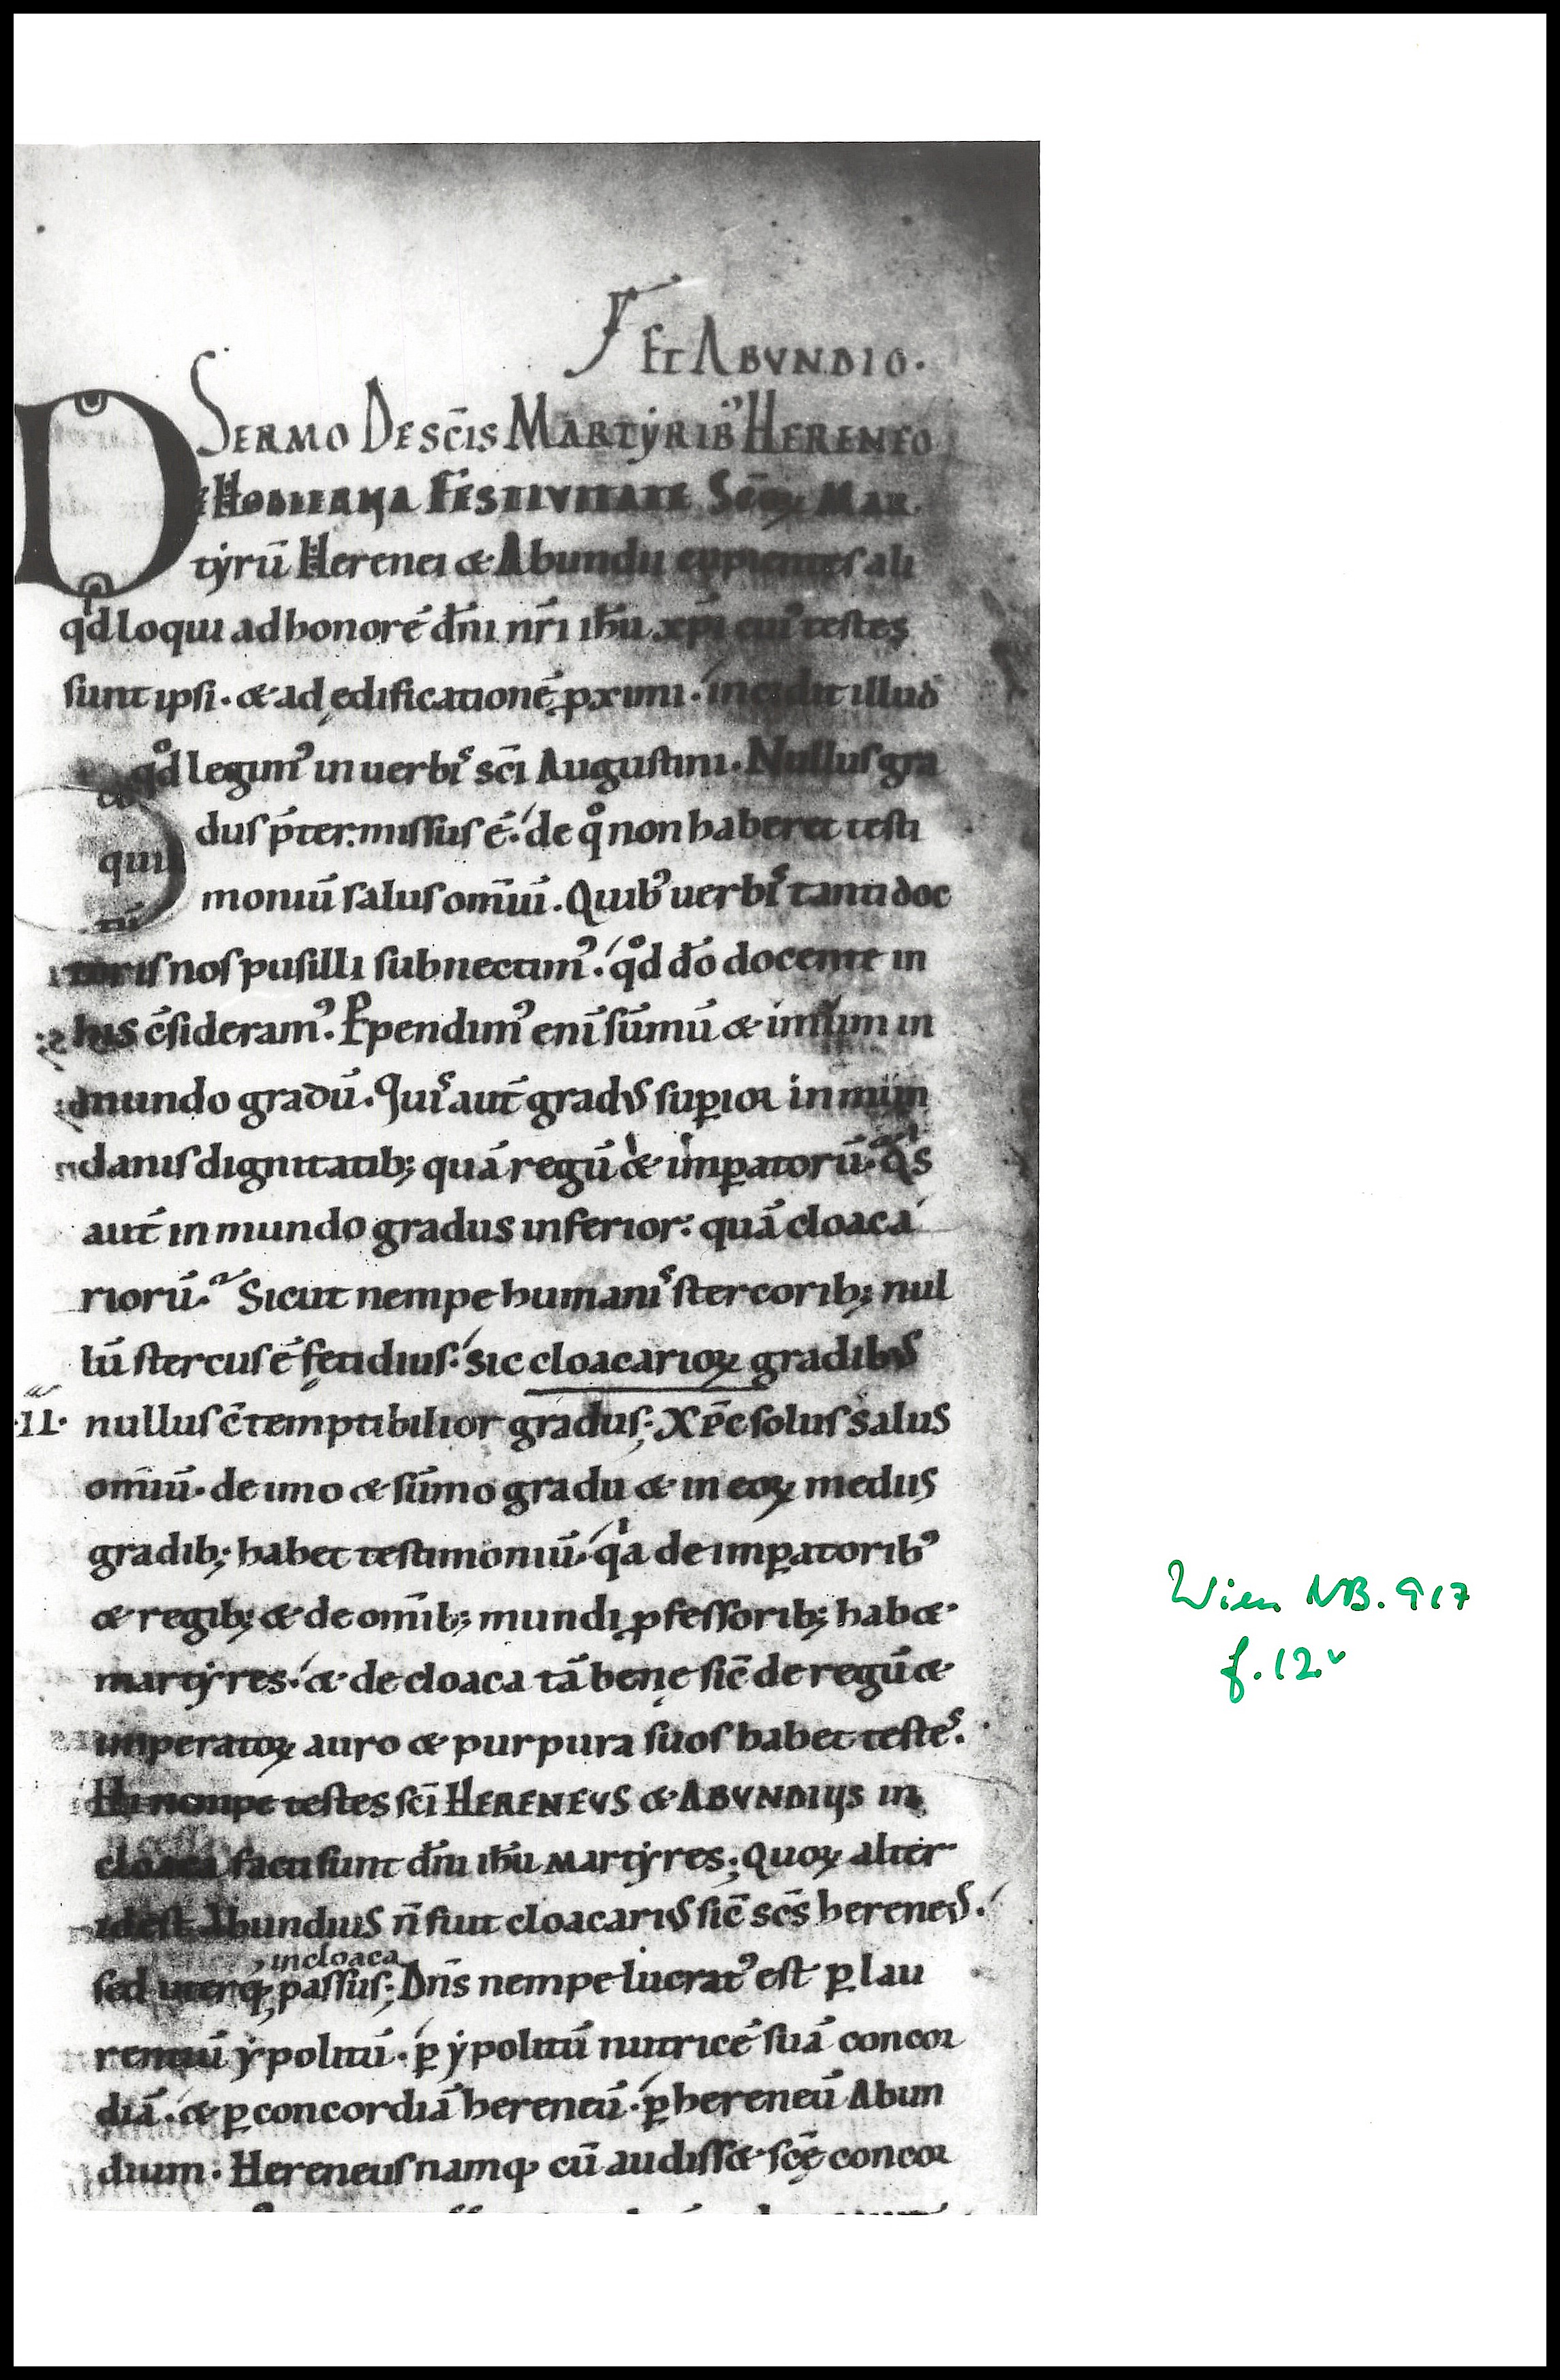 Et Abundio.
Sermo De sc̄is Martyrib᾽ Hereneo
De Hodierna Festivitate Sc̄oꝝ Mar
tẏrū Herenei & Abundii cupientes ali
qͥd loqui ad honorē dn̄i nr̄i ih̄u xp̄i cui᾽ testes
sunt ipsi. & ad ędificationē ꝓximi. incidit illud
qͦd legim᾽ in uerbis sc̄i Augustini. Nullus gra
dus p̄termissus ē. de qͦ non haberet testi
moniū salus om̄iū. Quib᾽ uerbis tanti doc
toris nos pusilli subnectim᾽. qͦd dō docente in
his c̄sideram᾽. Ꝑpendim᾽ enī sūmū & imum in
mundo gradū. Quis aut̄ gradus suꝑior in mun
danis dignitatib; quā regū & imꝑatorū. Qͥs
aut̄ in mundo gradus inferior. quā cloaca
riorū. Sicut nempe humanis stercorib; nul
lū stercus ē fętidius. sic cloacarioꝝ gradibus
.II. nullus c̄temptibilior gradus; Xp̄c solus salus
om̄iū. de imo & sūmo gradu & in eoꝝ mediis
gradib; habet testimoniū. qͥa de imꝑatorib᾽
& regib; & de om̄ib; mundi ꝓfessorib; hab&
martẏres. & de cloaca tā bene sic̄ de regū &
imperatoꝝ auro & purpura suos habet testes.
Hi nempe testes sc̄i Hereneus & Abundiis in
cloaca facti sunt dn̄i ih̄u martẏres; quoꝝ alter
id est Abundius n̄ fuit cloacarius sic̄ sc̄s hereneus.
in cloaca
sed uterq; passus; Dn̄s nempe lucrat᾽ est ꝑ lau
rentiū ẏpolitū. ꝑ ẏpolitū nutricē suā concor
diā. & ꝑ concordiā hereneū. ꝑ hereneū Abun
dium. Hereneus namq; cū audiss& sc̄ę concor
Wien NB. 917
f. 12v